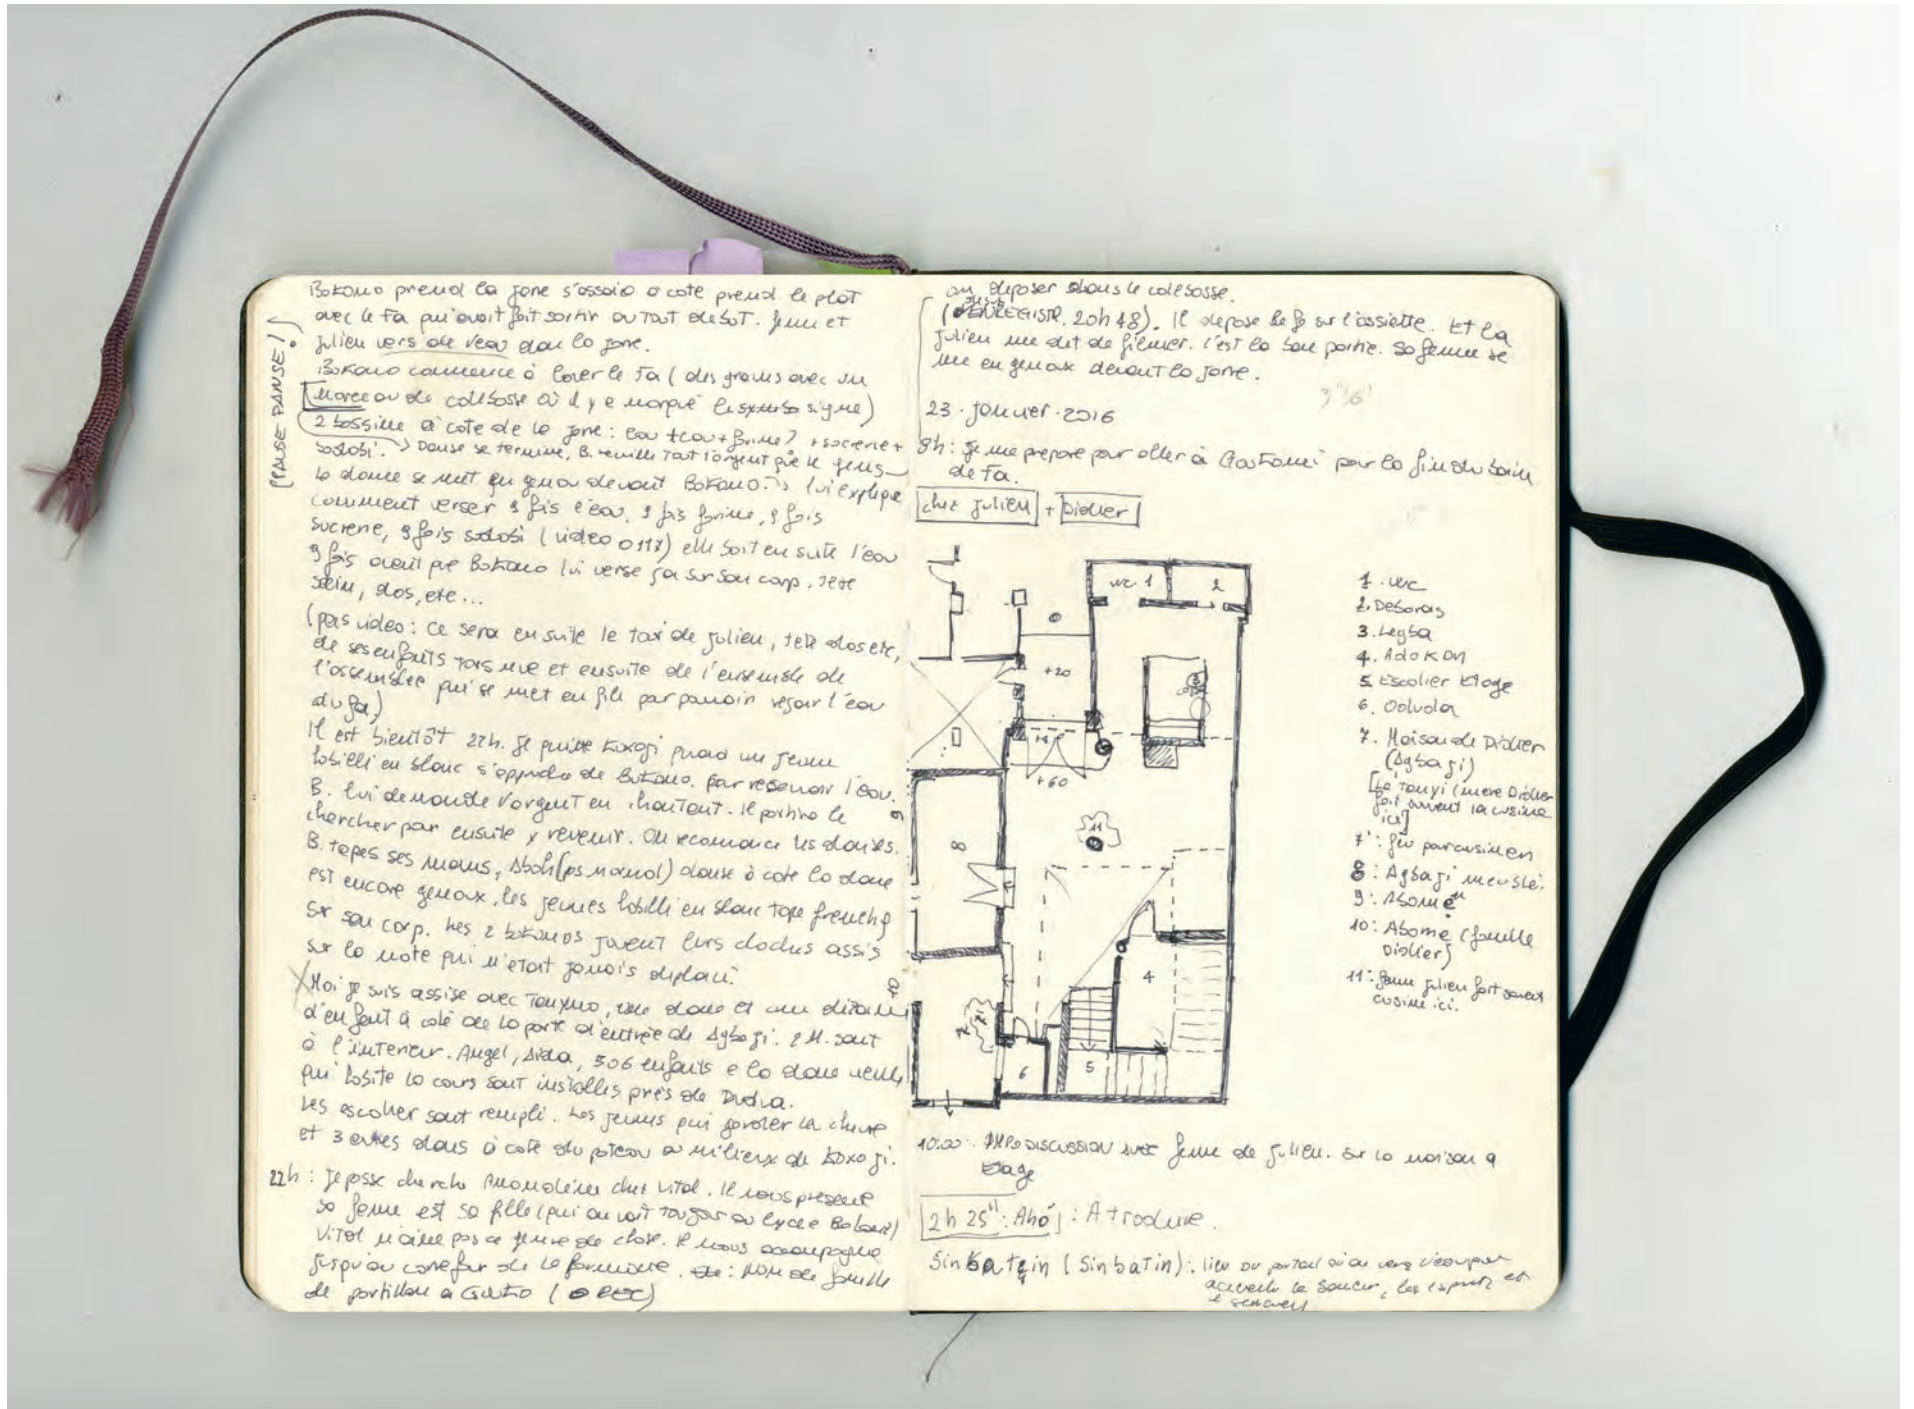 Bokono prend la jare s'assoio a cote prend le plat
avec le Fa qui avait fait sortir au tout debut. femme et
Julien vers de l'eau dans la jare.
(PAUSE DANSE!)
Bokono commence à laver le Fa (des grains avec un
morceau de calebasse où il y a marqué le signe)
2 bassine à cote de la jare : eau + eau + farine? + sucrerie +
sodabi. → Danse se termine, B. tout l'argent que le gens
la dame se met en genou devant Bokono. lui explique
comment verser 9 fois l'eau, 9 fois farine, 9 fois
sucrerie, 9 fois sodabi (video 0117) elle boit en suite l'eau
9 fois avant que Bokono lui verse ça sur son corp. Tete
sein, dos, etc...
(pas video : ce sera en suite le tour de Julien, tete dos etc,
de ses enfants tors nue et ensuite de l'ensemble de
l'assemblee qui se met en file par pouvoir reçoir l'eau
du fa)
Il est bientôt 22h. Je quitte quand un jeune
habillé en blanc s'approche de Bokono. par recevoir l'eau.
B. lui demande l'argent en chantant. Il partira le
chercher par ensuite y revenir. On recomance les danses.
B. tapes ses mains, danse à cote la dame
est encore genoux, les jeunes habillé en blanc tape
sur son corp. Les 2 bokonos jouent leurs cloches assis
sur la natte qui n'etait jamais deplacé.
Moi je suis assise avec une dame et une dizaine
d'enfant à coté de la porte d'entrée de Agbaji. 2 M. sont
à l'interieur. Angel, Aida, 5 o 6 enfants e la dame
qui habite la cours sont installés près de
Les escalier sont rempli. Les jeunes qui garder la chevre
et 3 autres dans à cote du poteau a milieux de
22h : Je passe cherche chez Vital. Il nous presente
sa femme est sa fille (qui on voit toujour au lycée)
Vital n'aime pas ce genre de chose. Il nous accompagne
jusqu'au carrefur de la : Nom de famille
de a (REC)
ou deposer dans le calebasse.
(ENREGISTR. 20h 48). Il depose le fa sur l'assiette. Et la
Julien me dit de filmer. C'est la bon partie. Sa femme se
me en genoux devant la jarre.
3"36'
23 . janvier . 2016
8h : Je me prepare pour aller à pour la fin du bain
de Fa.
chez Julien + Didier
wc 1
2
+20
3
+60
11
8
9
4
10
7
7'
6
5
1. wc
2. Debaras
3. Legba
4. Adokon
5. Escalier Etage
6.
7. Maison de Didier
(Agbaji)
[La Tanyi (mere Didier
fait souvent la cusine
ici]
7' : feu par cusinien
8 : Agbaji meublé.
9 : Abomè
10 : Abome (famille
Didier)
11 : femme Julien fait souvent
cusine ici.
10:20 : DISCUSSION avec femme de Julien. sur la maison a
Etage
2h 25" : Aho : A traduire.
Sinbatein (Sinbatin) : lieu ou portail où on vers l'eau pour
accueillir le , les esprits et
le